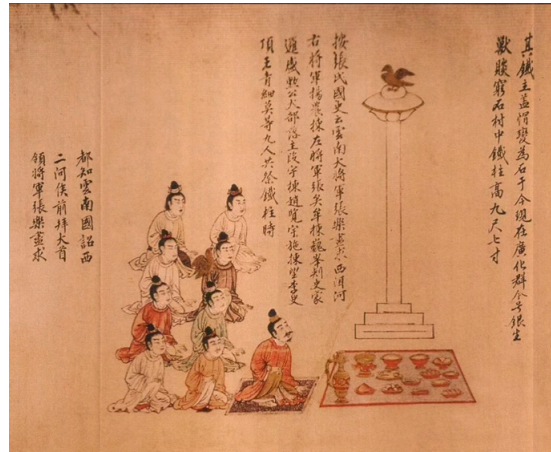 其鐵主蓋變為石于今現在廣化群今号銀生
獸賧窮石村中鐵柱高九尺七寸
按張氏國史云雲南大將軍張樂盡求西洱河
右將軍楊農棟左將軍張矣牟棟巍峯刾史蒙
邏盛勲公大部落主段宇棟趙覽宇施棟望李史
頂王青細莫等九人共祭鐵柱時
都知雲南國詔西
二河侯前拜大首
領將軍張樂盡求